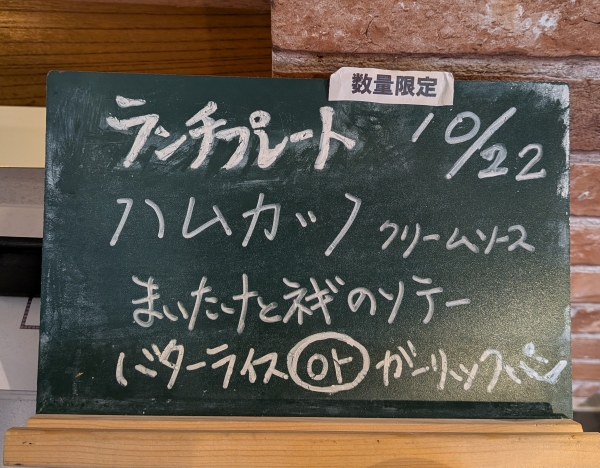 数量限定
ランチプレート 10/22
ハムカツ クリームソース
まいたけとネギのソテー
バターライス or ガーリックパン